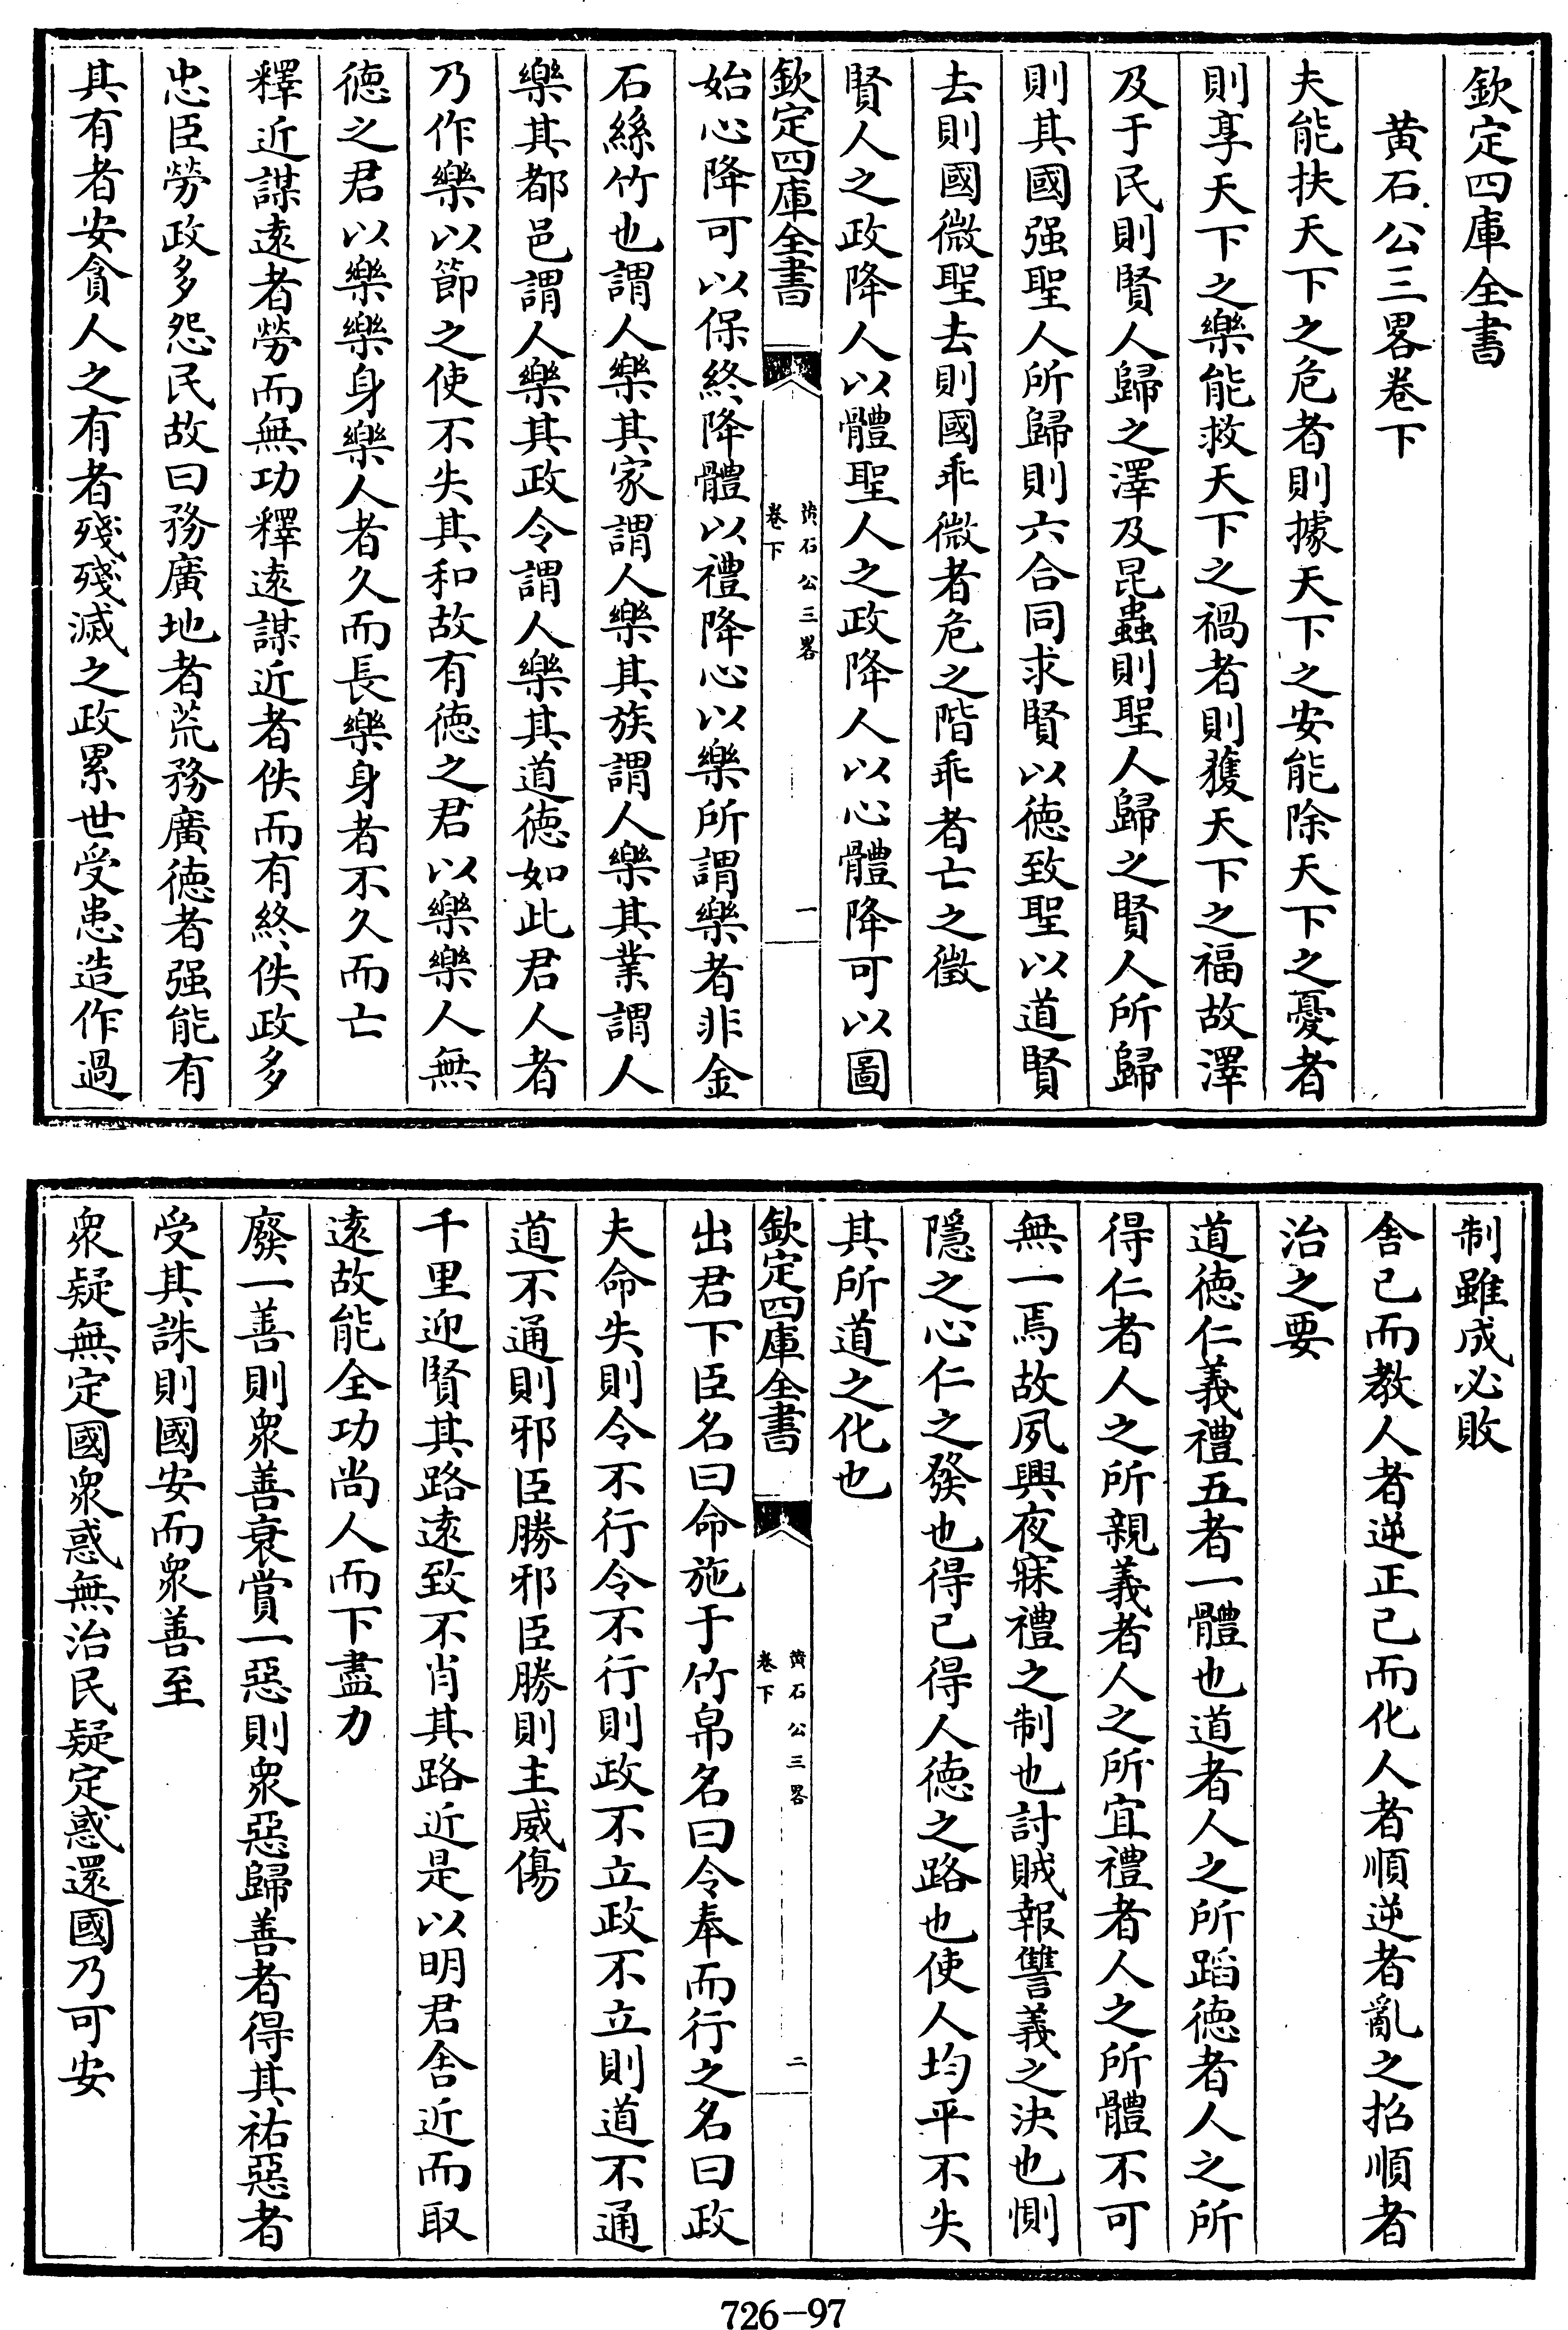 欽定四庫全書
黄石公三畧卷下
夫能扶天下之危者則據天下之安能除天下之憂者
則享天下之樂能救天下之禍者則獲天下之福故澤
及于民則賢人歸之澤及昆蟲則聖人歸之賢人所歸
則其國强聖人所歸則六合同求賢以徳致聖以道賢
去則國微聖去則國乖微者危之階乖者亡之徵
賢人之政降人以體聖人之政降人以心體降可以圖
欽定四庫全書
黄石公三畧
卷下
一
始心降可以保終降體以禮降心以樂所謂樂者非金
石絲竹也謂人樂其家謂人樂其族謂人樂其業謂人
樂其都邑謂人樂其政令謂人樂其道徳如此君人者
乃作樂以節之使不失其和故有徳之君以樂樂人無
徳之君以樂樂身樂人者久而長樂身者不久而亡
釋近謀遠者勞而無功釋遠謀近者佚而有終佚政多
忠臣勞政多怨民故曰務廣地者荒務廣徳者强能有
其有者安貪人之有者殘殘滅之政累世受患造作過
制雖成必敗
舍己而教人者逆正己而化人者順逆者亂之招順者
治之要
道徳仁義禮五者一體也道者人之所蹈徳者人之所
得仁者人之所親義者人之所宜禮者人之所體不可
無一焉故夙興夜寐禮之制也討賊報讐義之決也惻
隱之心仁之發也得己得人徳之路也使人均平不失
其所道之化也
欽定四庫全書
黄石公三畧
卷下
二
出君下臣名曰命施于竹帛名曰令奉而行之名曰政
夫命失則令不行令不行則政不立政不立則道不通
道不通則邪臣勝邪臣勝則主威傷
千里迎賢其路遠致不肖其路近是以明君舍近而取
遠故能全功尚人而下盡力
廢一善則衆善衰賞一惡則衆惡歸善者得其祐惡者
受其誅則國安而衆善至
衆疑無定國衆惑無治民疑定惑還國乃可安
726-97